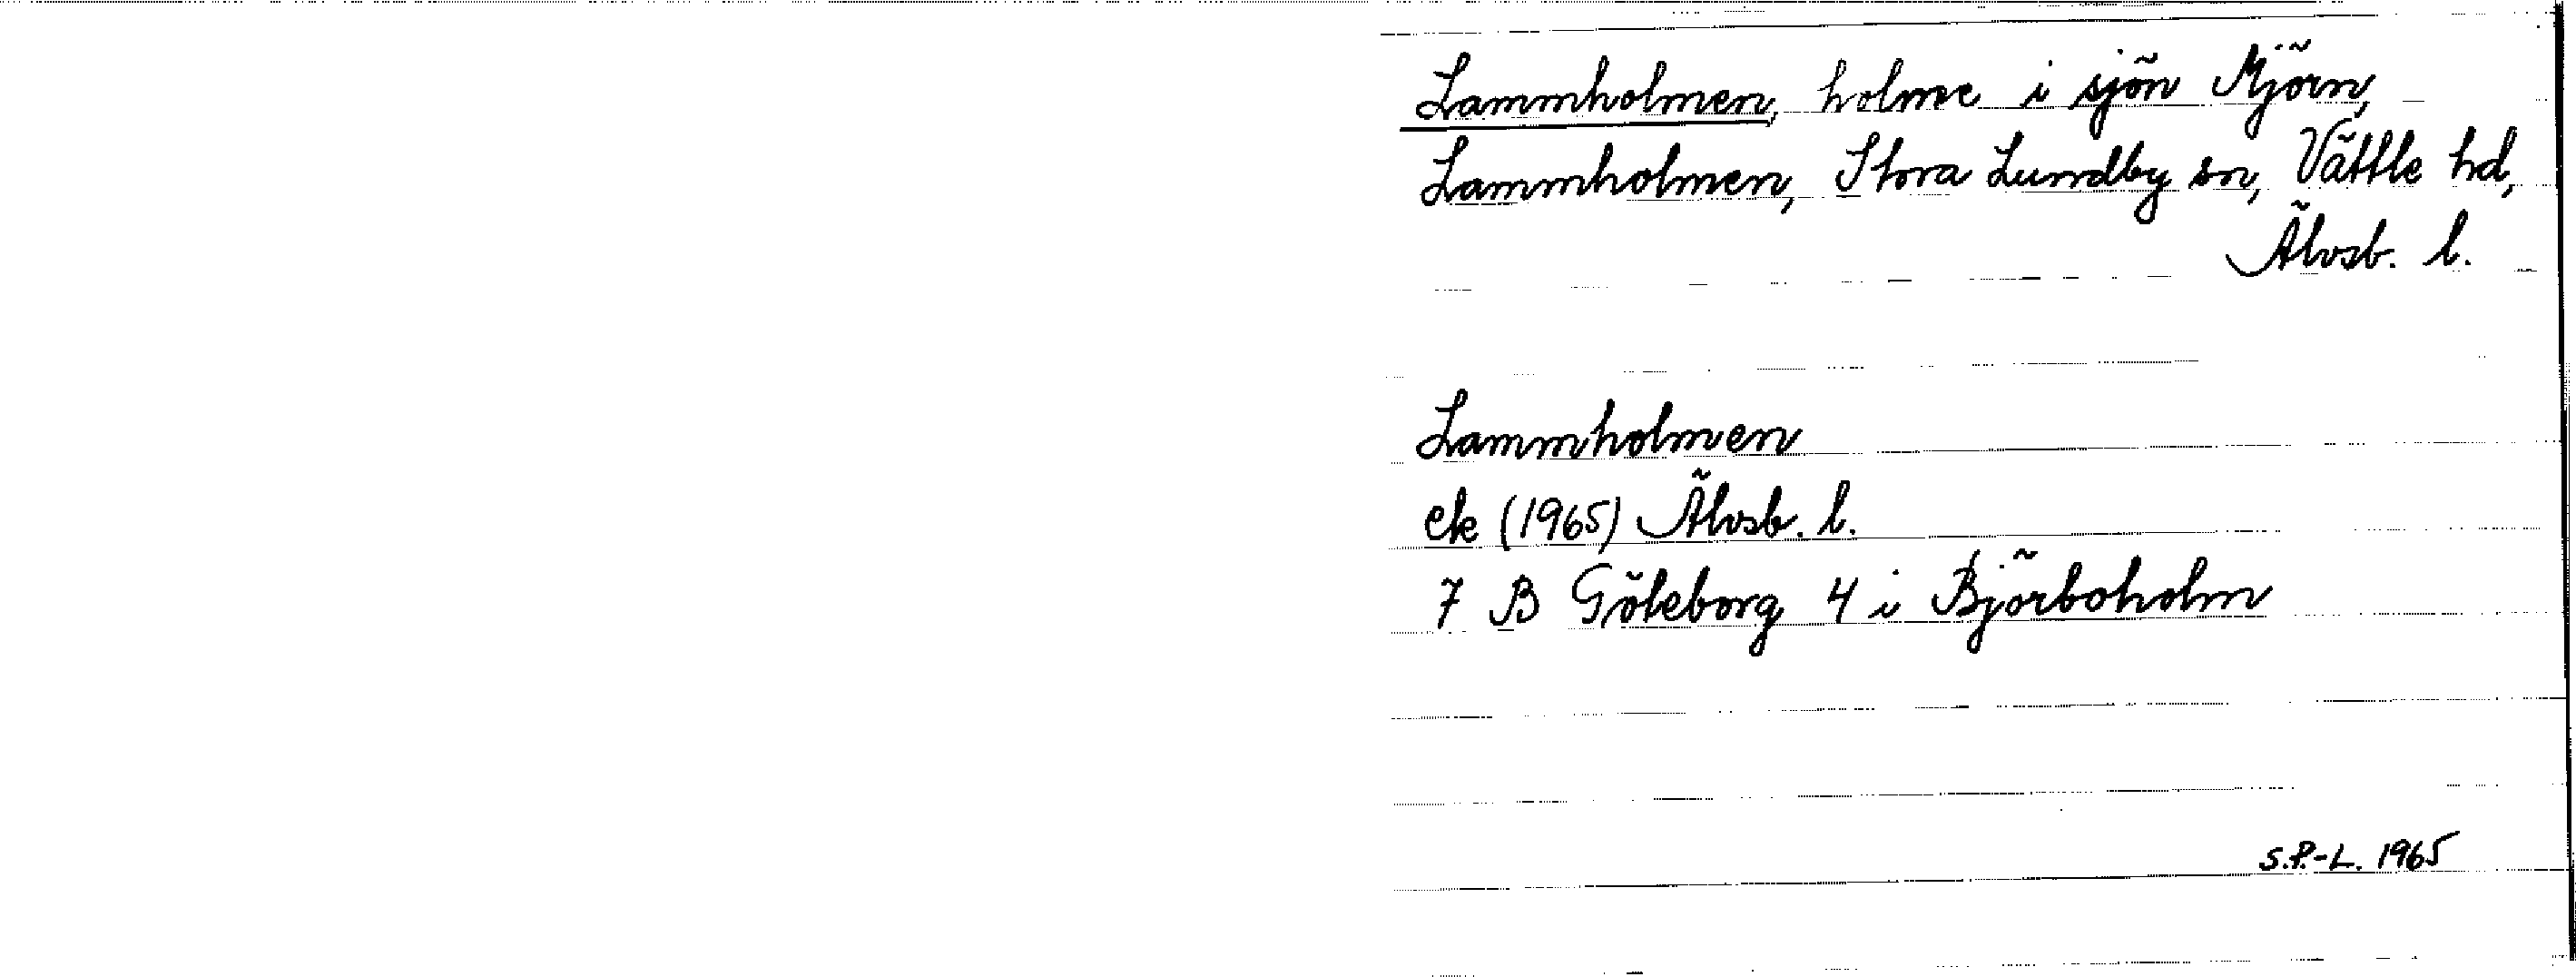 Lammholmen, holme i sjön Mjörn,
Lammholmen, Stora Lundby sn, Vättle hd,
Älvsb. l.
Lammholmen
ek (1965) Älvsb. l.
7 B Göteborg 4 i Björboholm
S.P.-L. 1965